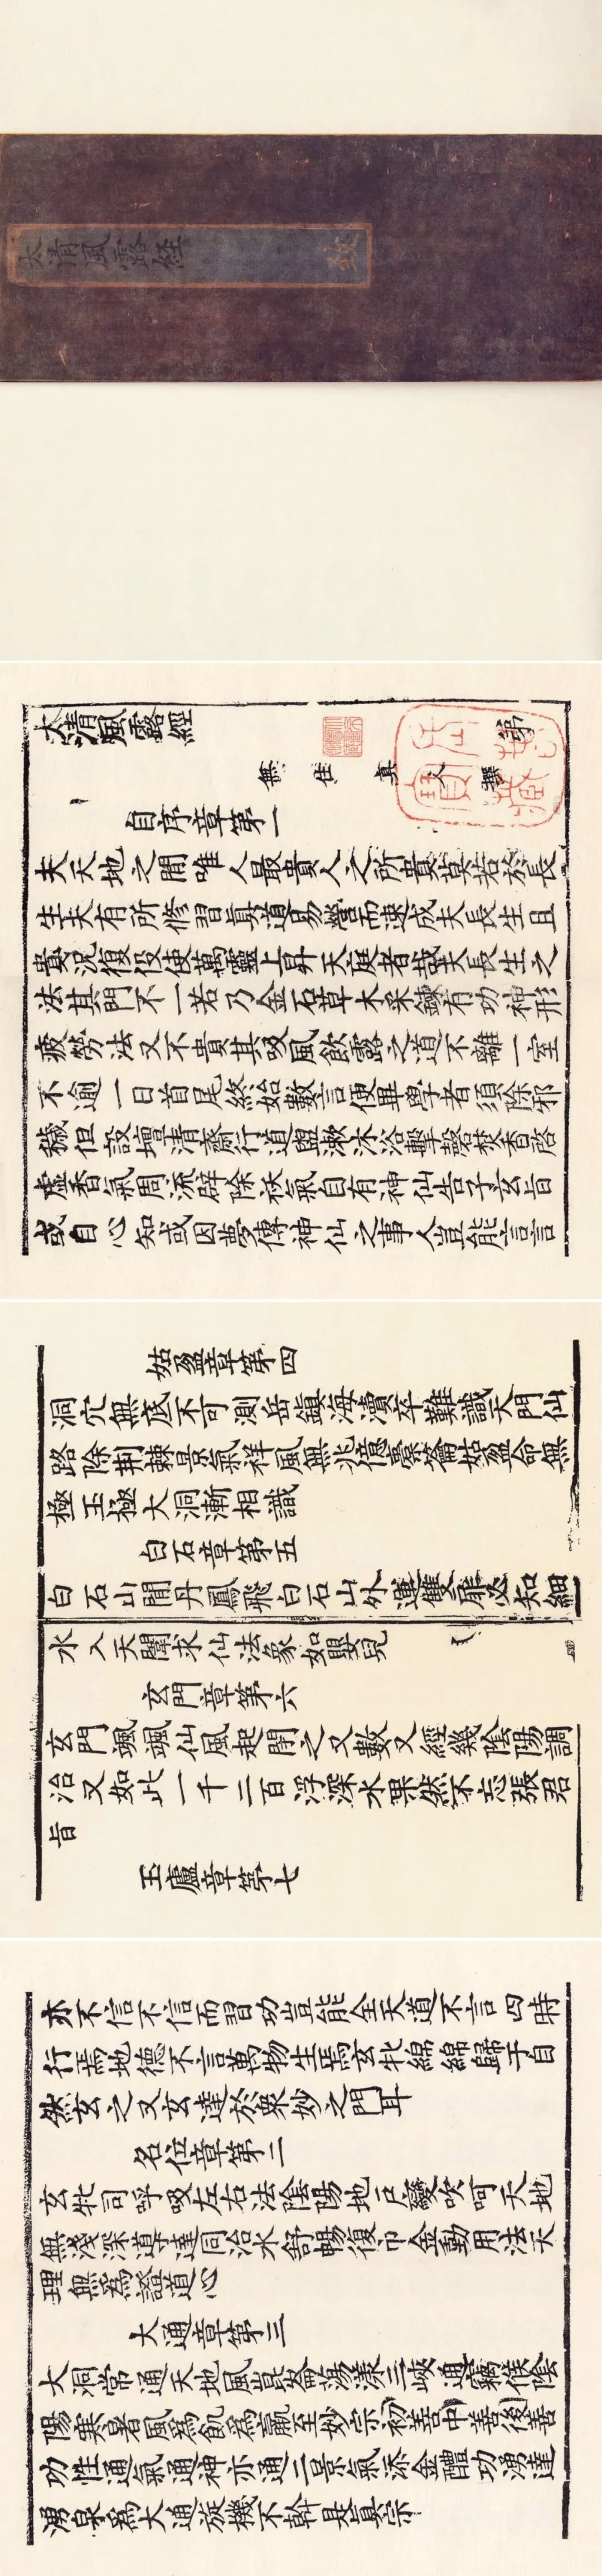 太清風露經
太清風露經
無住真人撰
自序章第一
夫天地之間唯人最貴人之所貴莫若於長
生夫有所修習真道易營而速成夫長生且
貴況復役使萬靈上昇天庭者哉夫長生之
法其門不一若乃金石草木采鍊有功神形
疲勞法又不貴其吸風飲露之道不離一室
不逾一日首尾終始數言便畢學者須除邪
穢但設壇清齋行道盥漱沐浴擊磬焚香啓
虛香氣周流辟除祆氣自有神仙告子玄旨
或自心知或因夢傳神仙之事人豈能言言
姑盈章第四
洞穴無底不可測岳鎮海瀆卒難識天門仙
路除荆棘景氣祥風無兆億橐籥姑盈命無
極玉極大洞漸相識
白石章第五
白石山間丹鳳飛白石山外遶雙扉必知細
水入天關求仙法象如嬰兒
玄門章第六
玄門颯颯仙風起閉之又數又經幾陰陽調
冶又如此一千二百浮深水果然不忘張君
旨
玉廬章第七
亦不信不信而習功豈能全天道不言四時
行焉地德不言萬物生焉玄牝綿綿歸于自
然玄之又玄達於衆妙之門耳
名位章第二
玄牝司呼吸左右法陰陽地戶變吹呵天地
無淺深導達同治水舒暢復巾金動用法天
理無為證道心
大通章第三
大洞常通天地風崑崙蕩漾三峽通竊候陰
陽寒暑風為飢為羸至妙宗初善中善後善
功性通氣通神亦通二景氣添金醴功湧達
湧泉為大通旋機不幹是真宗